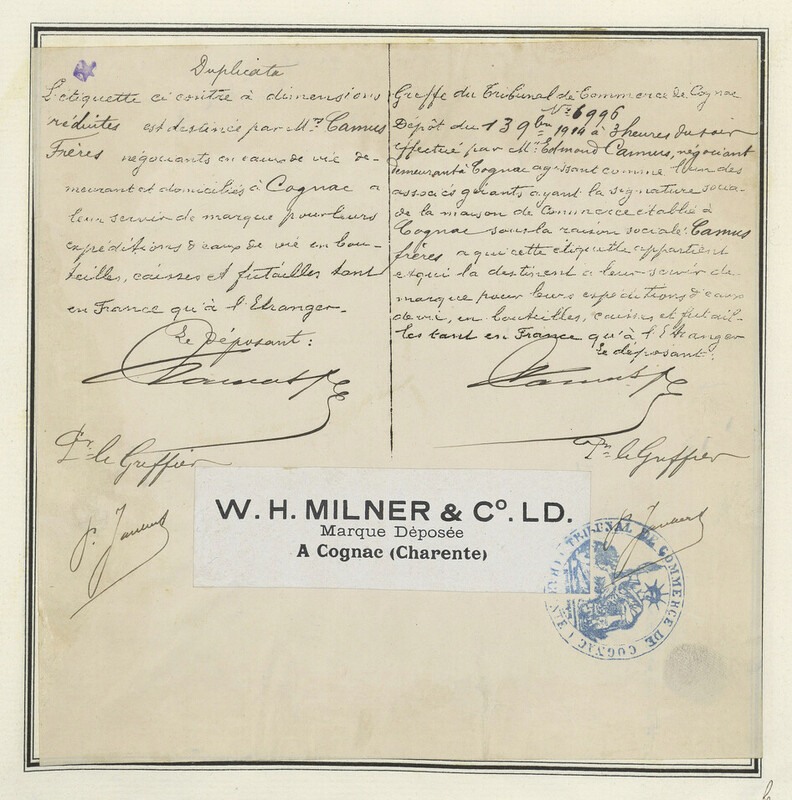 Duplicata
L'étiquette ci contre à dimensions
réduites est destinée par M.rs Camus
Frères négociants en eaux de vie de-
meurant et domiciliés à Cognac a
leur servir de marque pour leurs
expéditions d'eaux de vie en bou-
teilles, caisses et futailles tant
en France qu'à l'Etranger.
Le déposant:
Pr le Greffier
Greffe du Tribunal de Commerce de Cognac
No 6996
Dépôt du 13 9bre 1914 à 3 heures du soir
effectué par Mr Edmond Camus, négociant
demeurant à Cognac agissant comme l'un des
associés gérants ayant la signature socia-
de la maison de Commerce établie à
Cognac sous la raison sociale: Camus
frères a qui cette étiquette appartient
et qui la destinent a leur servir de
marque pour leurs expéditions d'eaux
de vie, en bouteilles, caisses et futail-
les tant en France qu'à l'Etranger
Le déposant:
Pr le Greffier
W. H. MILNER & Co. LD.
Marque Déposée
A Cognac (Charente)
TRIBUNAL DE COMMERCE DE COGNAC